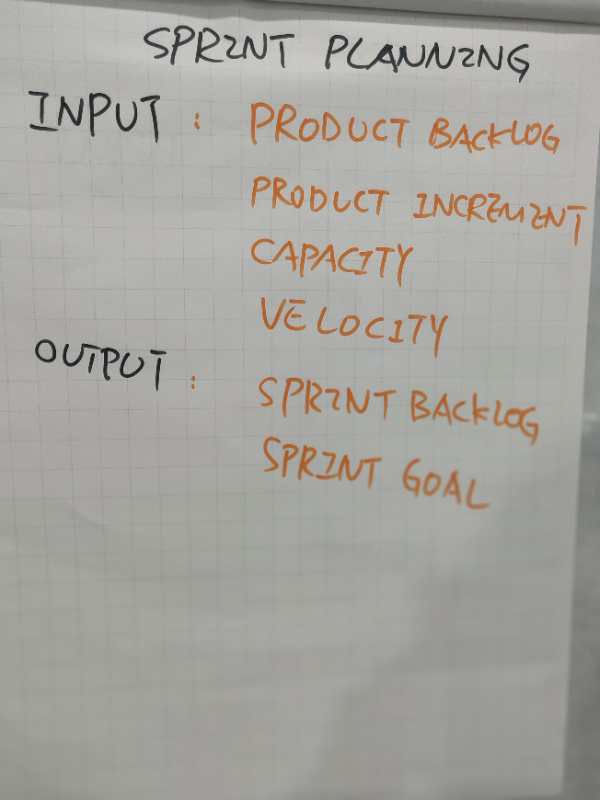 SPRINT PLANNING
INPUT : PRODUCT BACKLOG
PRODUCT INCREMENT
CAPACITY
VELOCITY
OUTPUT : SPRINT BACKLOG
SPRINT GOAL